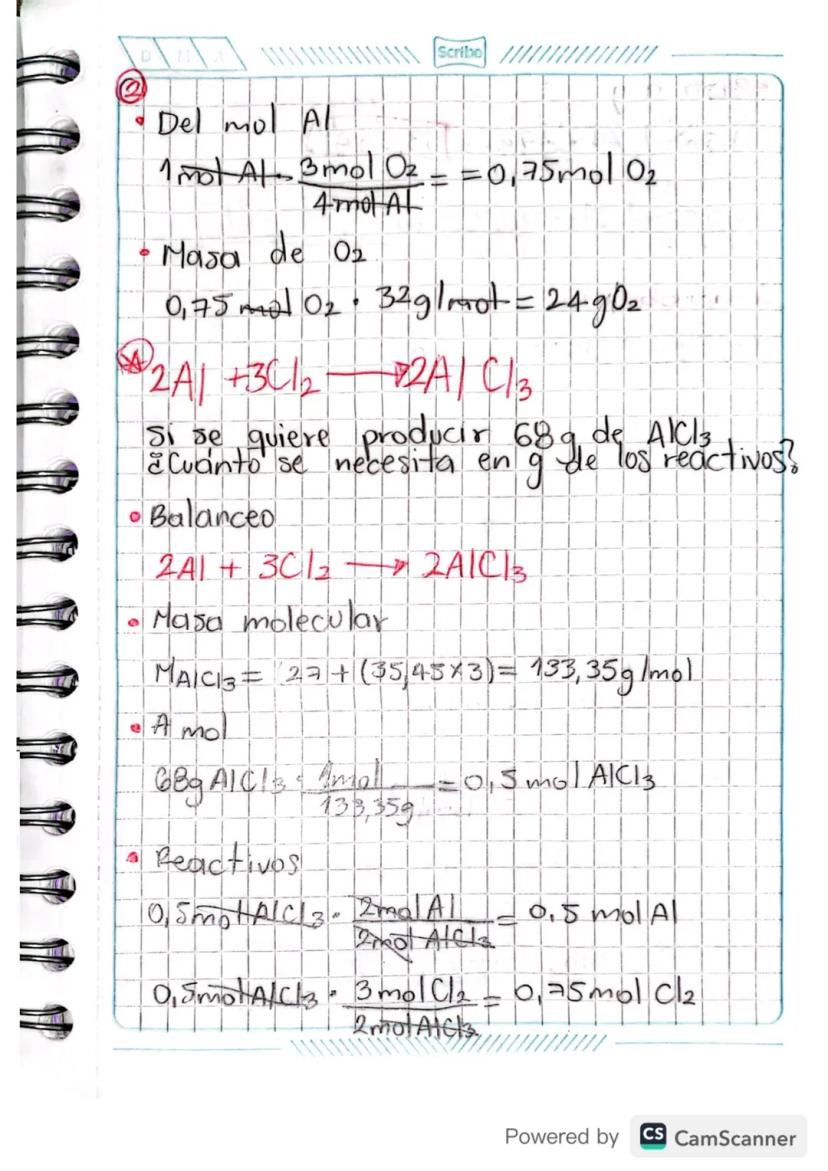 D M A
Scribe
②
• Del mol Al
1 mol Al · 3 mol O₂ / 4 mol Al = = 0,75 mol O₂
• Masa de O₂
0,75 mol O₂ · 32g/mol = 24 g O₂
2Al + 3Cl₂ → 2AlCl₃
Si se quiere producir 68 g de AlCl₃
¿Cuánto se necesita en g de los reactivos?
• Balanceo
2Al + 3Cl₂ → 2AlCl₃
• Masa molecular
MAlCl₃ = 27 + (35,45 x 3) = 133,35 g/mol
• A mol
68g AlCl₃ · 1mol / 133,35g = 0,5 mol AlCl₃
• Reactivos
0,5 mol AlCl₃ · 2 mol Al / 2 mol AlCl₃ = 0,5 mol Al
0,5 mol AlCl₃ · 3 mol Cl₂ / 2 mol AlCl₃ = 0,75 mol Cl₂
Powered by CS CamScanner